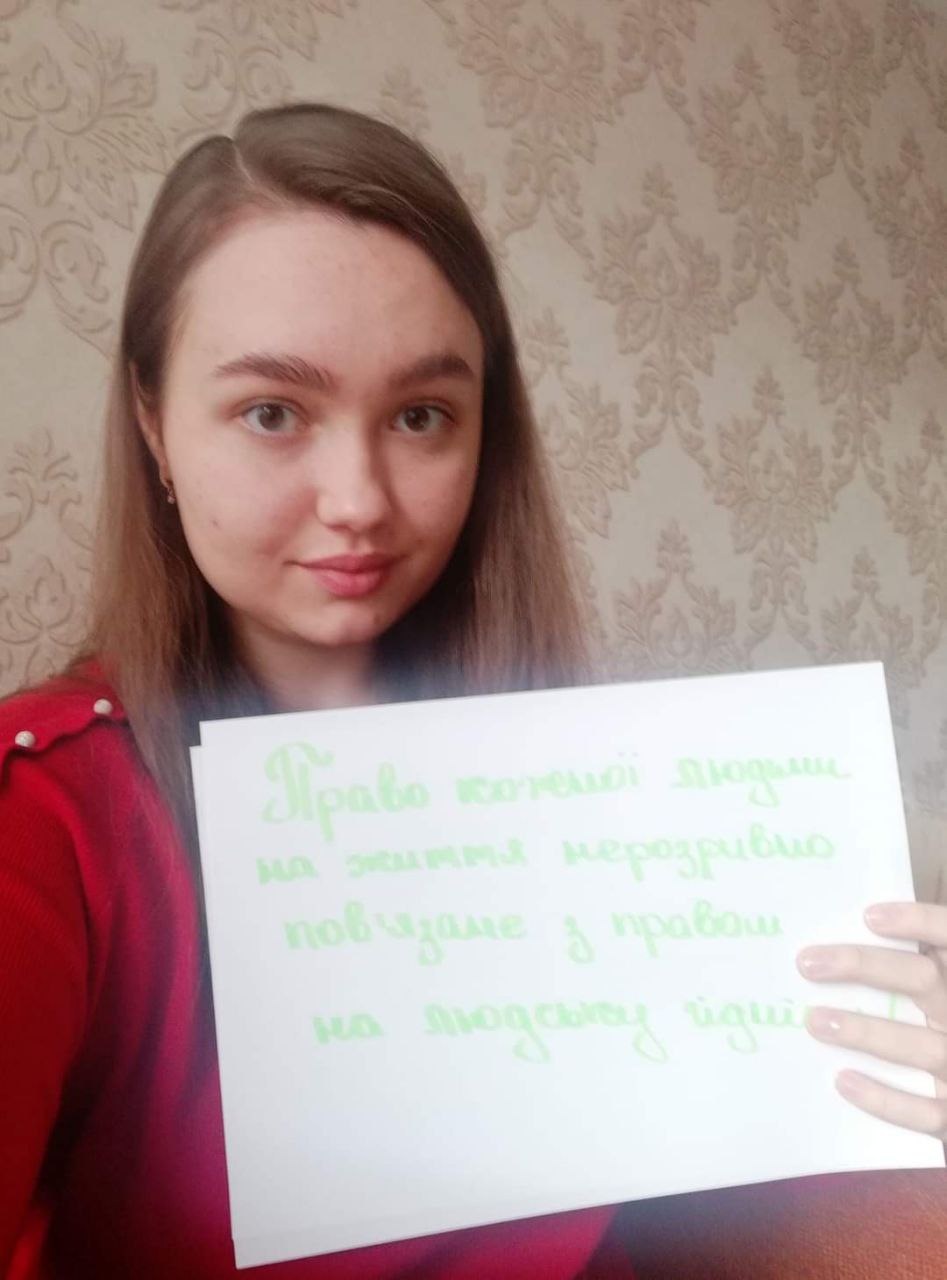 Право кожної людини
на життя нерозривно
пов'язане з правом
на людську гідні